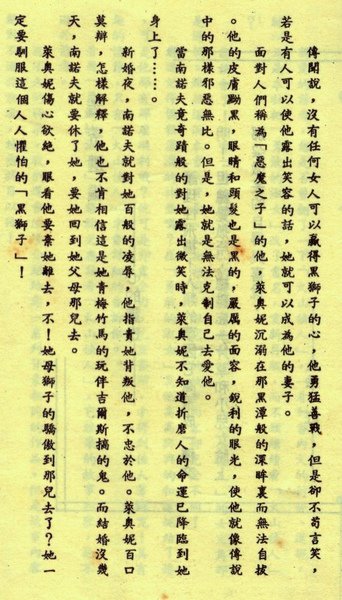 傳聞說，沒有任何女人可以贏得黑獅子的心，他勇猛善戰，但是卻不苟言笑，
若是有人可以使他露出笑容的話，她就可以成為他的妻子。
面對人們稱為「惡魔之子」的他，萊奧妮沉溺在那黑潭般的深眸裏而無法自拔
。他的皮膚黝黑，眼睛和頭髮也是黑的，嚴厲的面容，銳利的眼光，使他就像傳說
中的那樣邪惡無比。但是，她就是無法克制自己去愛他。
當南諾夫竟奇蹟般的對她露出微笑時，萊奧妮不知道折磨人的命運已降臨到她
身上了……。
新婚夜，南諾夫就對她百般的凌辱，他指責她背叛他，不忠於他。萊奧妮百口
莫辯，怎樣解釋，他也不肯相信這是她青梅竹馬的玩伴吉爾斯搞的鬼。而結婚沒幾
天，南諾夫就要休了她，要她回到她父母那兒去。
萊奧妮傷心欲絕，眼看他要棄她離去，不！她母獅子的驕傲到那兒去了？她一
定要馴服這個人人懼怕的「黑獅子」！